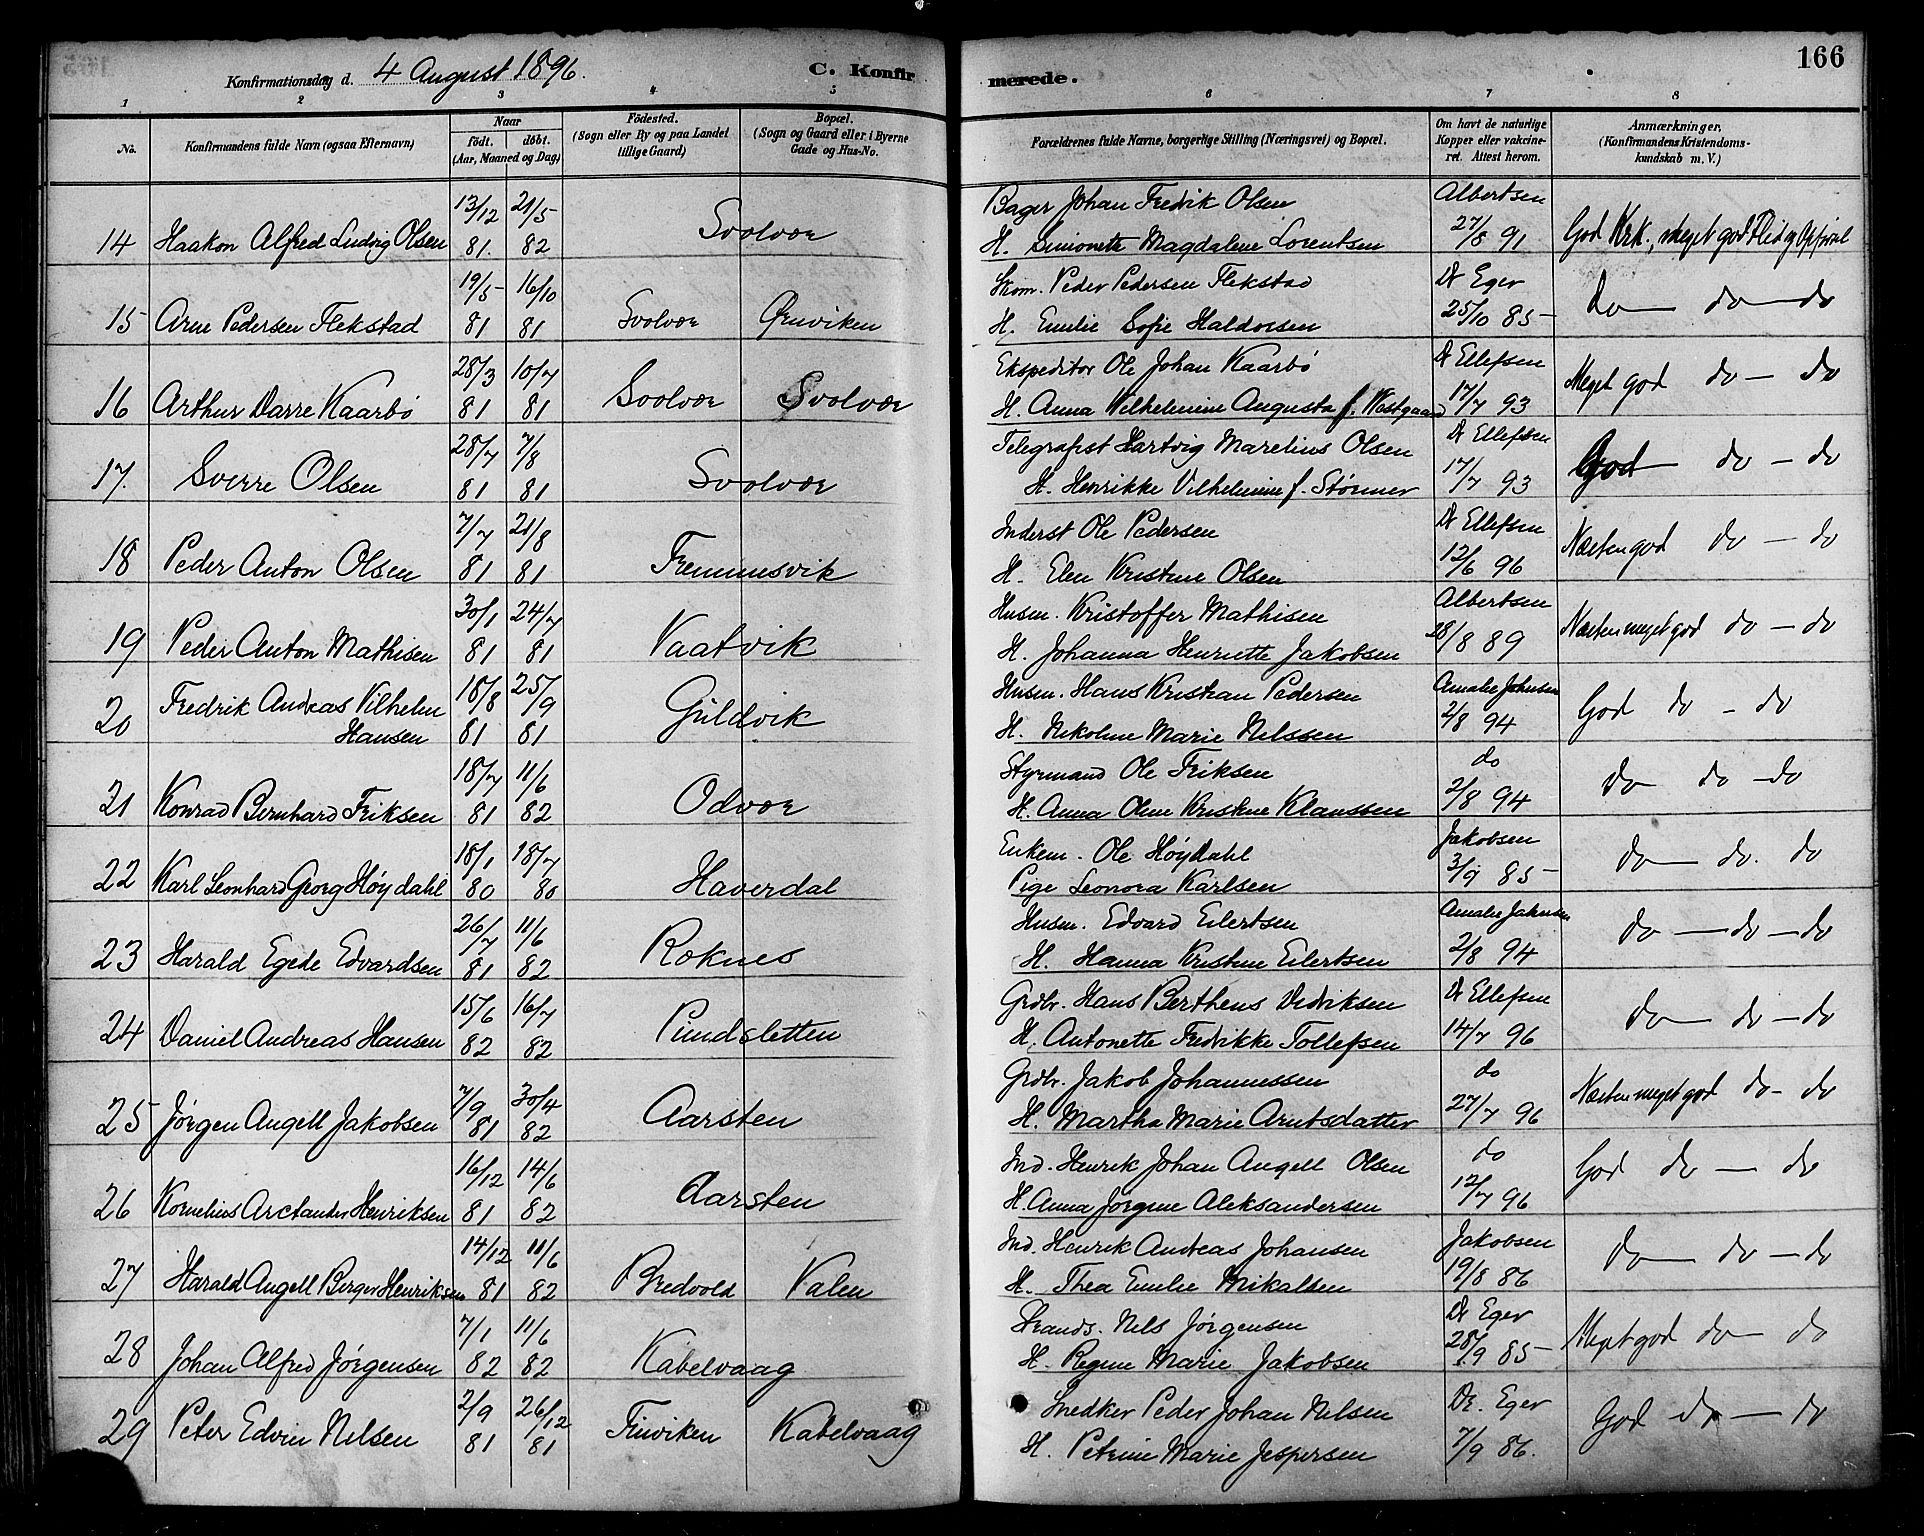 166
Konfirmationsdag d. 4 August 1896. C. Konfirmerede.
1 2 3 4 5 6 7 8
No. Konfirmandens fulde Navn (ogsaa Efternavn) Naar født. døbt. (Aar, Maaned og Dag) Fødested. (Sogn eller By og paa Landet tillige Gaard) Bopæl. (Sogn og Gaard eller i Byerne Gade og Hus-No. Forældrenes fulde Navne, borgerlige Stilling (Næringsvei) og Bopæl. Om havt de naturlige Kopper eller vakcineret. Attest herom. Anmærkninger, (Konfirmandens Kristendomskundskab m. V.)
13/12 21/5 Bager Johan Fredrik Olsen Albertsen
14 Haakon Alfred Ludvig Olsen 81. 82 Svolvær H. Simonette Magdalene Lorentsen 27/8 91 God Krk., meget god Flid og Opførsel
19/5 16/10 Skom. Peder Pedersen Flekstad Dr Eger
15 Arne Pedersen Flekstad 81 81 Svolvær Ørnviken H. Emilie Sofie Haldorsen 25/10 85 do — do — do
28/3 10/7 Ekspeditør Ole Johan Kaarbø Dr Ellefsen
16 Arthur Darre Kaarbø 81 81 Svolvær Svolvær H. Anna Vilhelmine Augusta f. Westgaard 17/7 93 Meget god do — do
28/7 7/8 Telegrafist Hartvig Marelius Olsen Dr Ellefsen
17. Sverre Olsen 81 81 Svolvær H. Henrikke Vilhelmine f. Størmer 17/7 93 God do — do
7/7 21/8 Inderst Ole Pedersen Dr Ellefsen
18 Peder Anton Olsen 81 81 Fremnesvik H. Elen Kristine Olsen 12/6 96 Næsten god do — do
30/1 24/7 Husm. Kristoffer Mathisen Albertsen
19 Peder Anton Mathisen 81 81 Vaatvik H. Johanna Henriette Jakobsen 28/8 89 Næsten meget god do — do
Fredrik Andreas Vilhelm 18/8 25/9 Husm. Hans Kristian Pedersen Amalie Johnsen
20 Hansen 81 81 Guldvik H. Nikoline Marie Nilssen 2/8 94 God do — do
18/7 11/6 Styrmand Ole Friksen do
21 Konrad Bernhard Friksen 81 82 Odvær H. Anna Oline Kristine Klaussen 2/8 94 do do — do
18/1 18/7 Enkem. Ole Høydahl Jakobsen
22 Karl Leonhard Georg Høydahl 80 80 Haverdal Pige Leonora Karlsen 3/9 85 do — do. do
26/7 11/6 Husm. Edvard Eilertsen Amalie Johnsen
23 Harald Egede Edvardsen 81 82 Roknes H. Hanna Kristine Eilertsen 2/8 94 do — do — do
15/6 16/7 Grdbr. Hans Bertheus Didriksen Dr Ellefsen
24 Daniel Andreas Hansen 82 82 Pundsletten H. Antonette Fredrikke Tollefsen 14/7 96 do — do — do
7/9 30/4 Grdbr. Jakob Johannessen do
25 Jørgen Angell Jakobsen 81 82 Aarsten H. Martha Marie Arntsdatter 27/7 96 Næsten meget god do — do
16/12 14/6 Ind. Henrik Johan Angell Olsen do
26 Kornelius Arctander Henriksen 81 82 Aarsten H. Anna Jørgine Aleksandersen 12/7 96 God do — do
14/12 11/6 Ind. Henrik Andreas Johansen Jakobsen
27 Harald Angell Berger Henriksen 81 82 Bredvold Valen H. Thea Emilie Mikalsen 19/8 86 do — do — do
7/1 11/6 Strands. Nils Jørgensen Dr Eger
28 Johan Alfred Jørgensen 82 82 Kabelvaag H. Regine Marie Jakobsen 28/9 85 Meget god do — do
2/9 26/12 Snedker Peder Johan Nilsen Dr. Eger
29 Peter Edvin Nilsen 81 81 Finviken Kabelvaag H. Petrine Marie Jespersen 7/9 86. God do — do